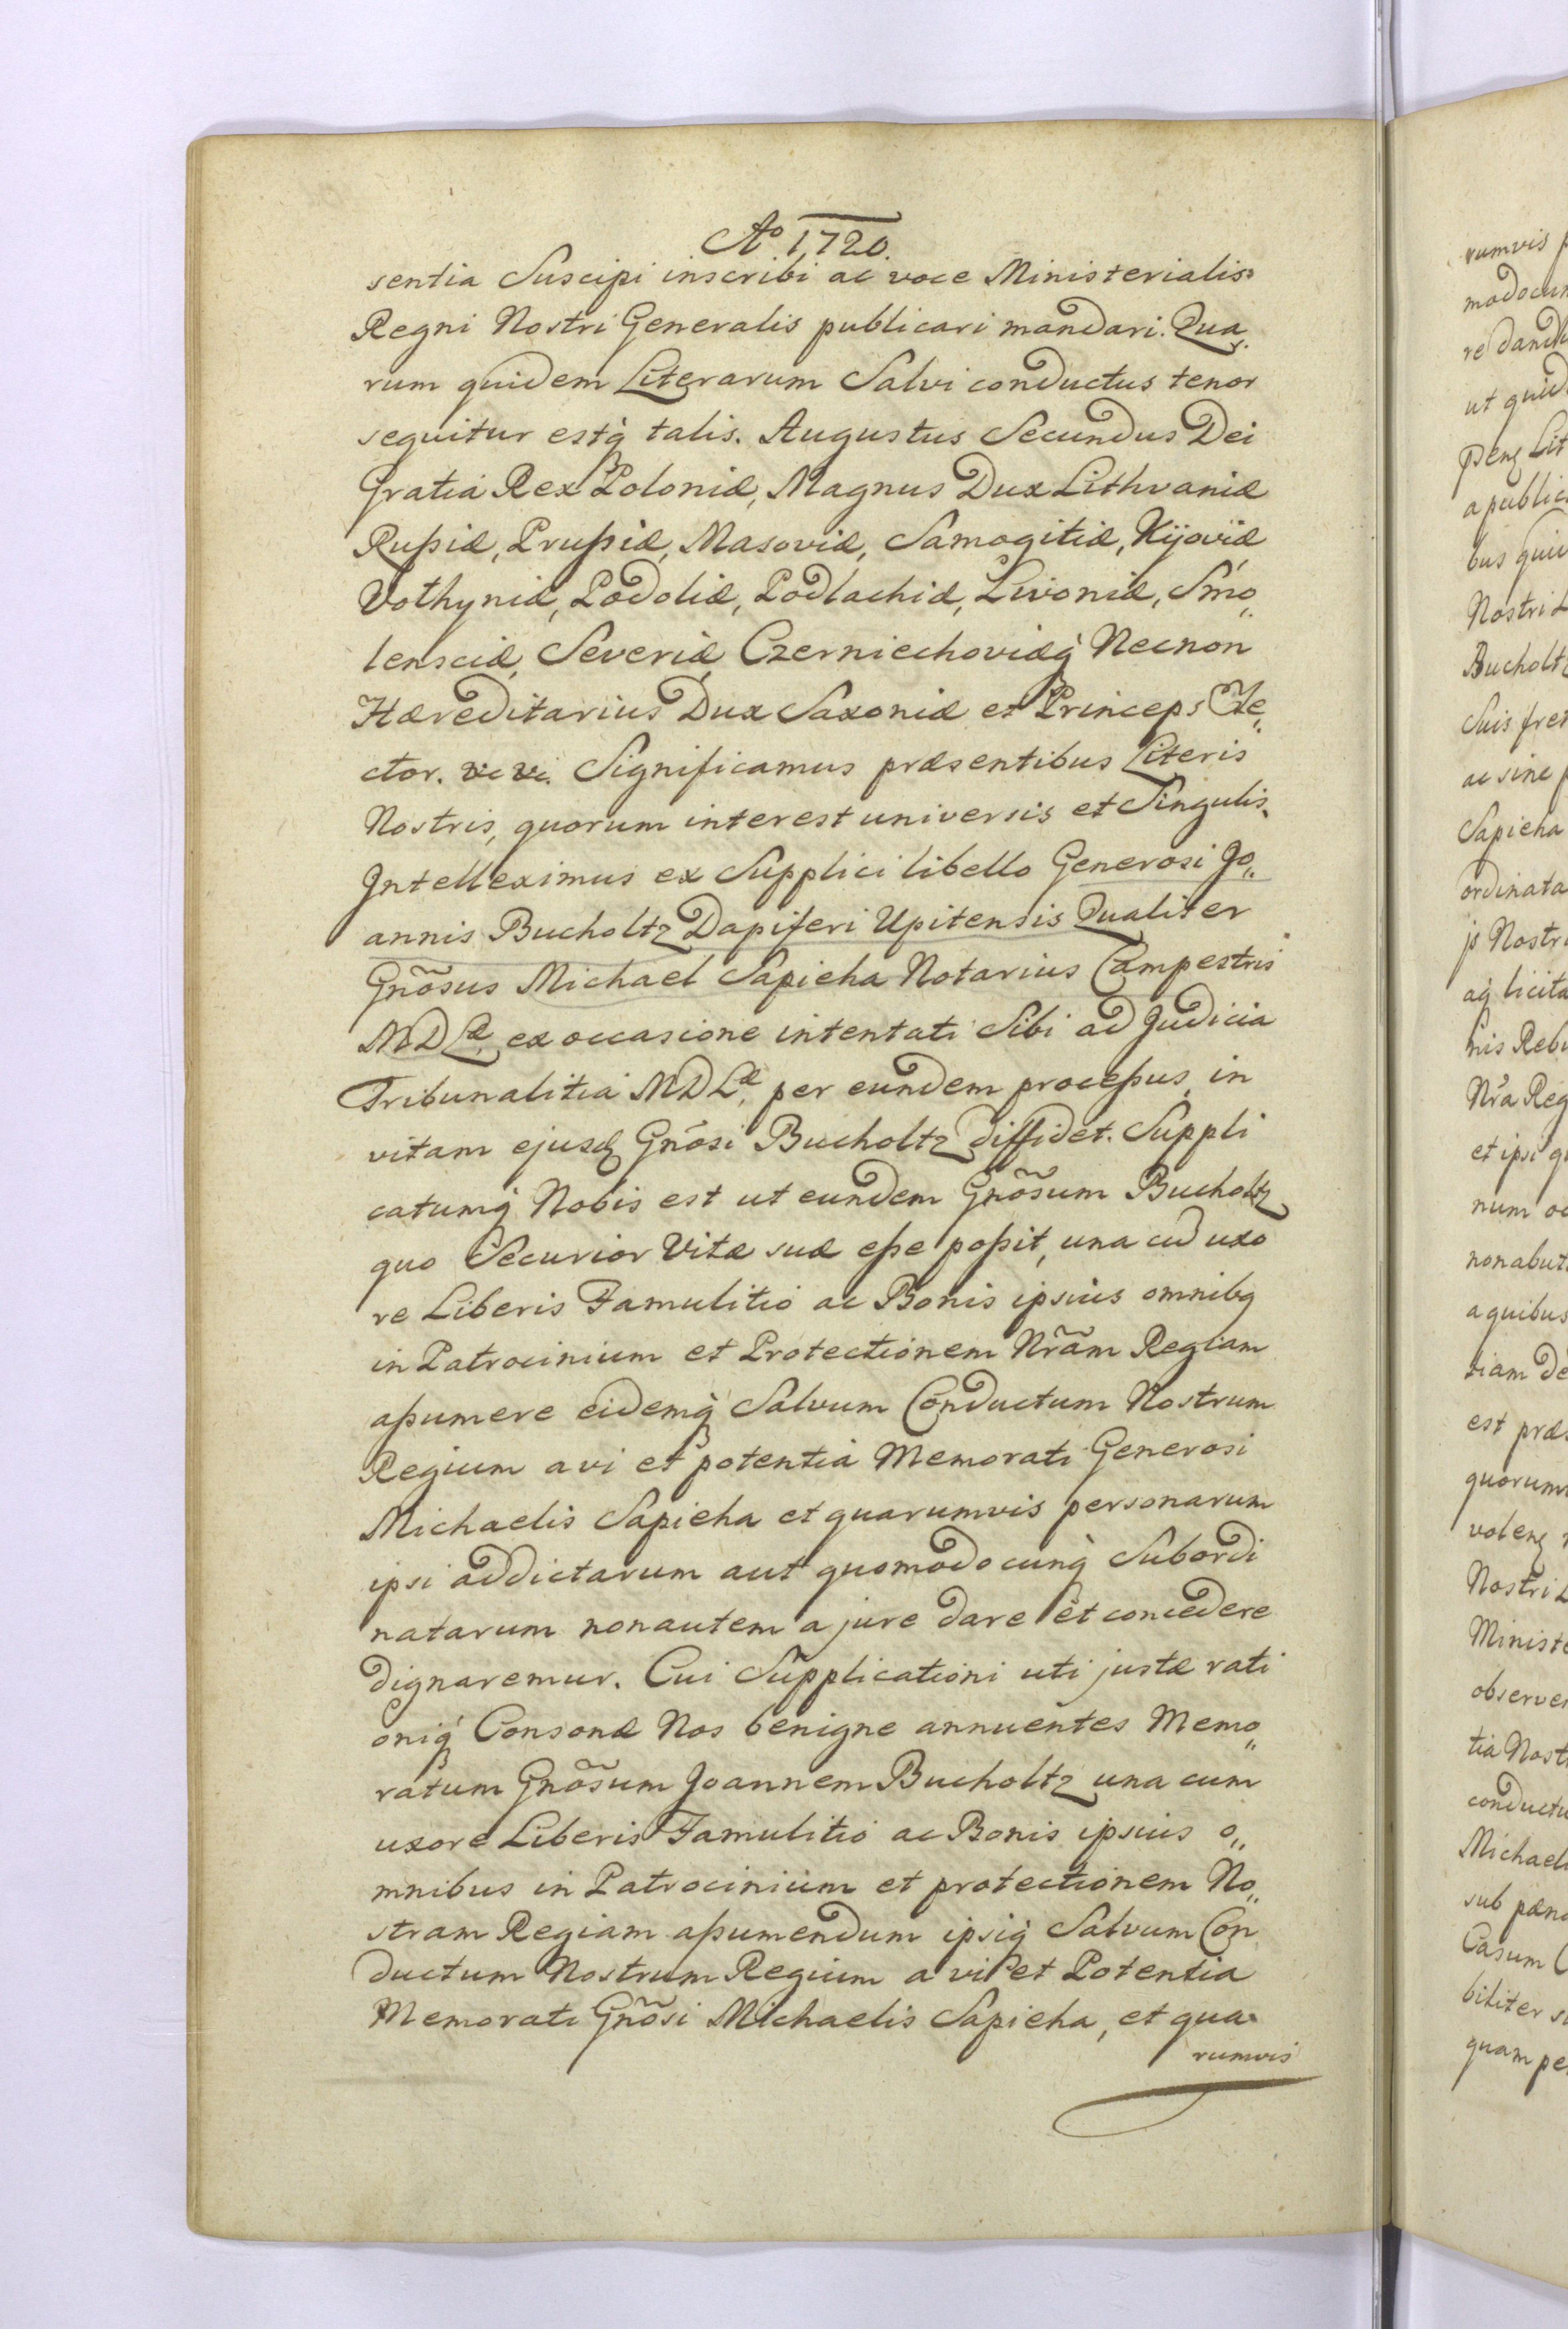 Aº 1720.
sentia Suscipi inscribi ac voce Ministerialis
Regni Nostri Generalis publicari mandari. Qua
rum quidem Literarum Salvi conductus tenor
sequitur estq́ talis. Augustus Secundus Dei
Gratia Rex Poloniæ, Magnus Dux Lithvaniæ
Rußiæ, Prußiæ, Masoviæ, Samogitiæ, Kijoviæ
Volhyniæ, Podoliæ, Podlachiæ, Livoniæ, Smo„
lensciæ, Severiæ, Czerniechoviæq́ Necnon
Hæreditarius Dux Saxoniæ et Princeps Ele„
ctor. Significamus præsentibus Literis
Nostris, quorum interest universis et Singulis,
Intelleximus ex Supplici libello Generosi Jo„
annis Bucholtz Dapiferi Upitensis Qualiter
Gnõsus Michael Sapieha Notarius Campestris
MDLæ, ex occasione intentati Sibi ad Judicia
Tribunalitia MDLæ, per eundem proceßus, in
vitam ejusq Gnõsi Bucholtz diffidet. Suppli
catumq́ Nobis est ut eundem Gnõsum Bucholtz
quo Securior Vitæ suæ eße poßit, una cũ uxo
re Liberis Famulitio ac Bonis ipsius omnibq
in Patrocinium et Protectionem Nrãm Regiam
aßumere eidemq́ Salvum Conductum Nostrum
Regium a vi et potentia Memorati Generosi
Michaelis Sapieha et quarumvis personarum
ipsi addictarum aut quomodocunq́ Subordi
natarum non autem a jure dare et concedere
dignaremur. Cui Supplicationi uti justæ rati
oniq́ Consonæ Nos benigne annuentes Memo„
ratum Gnõsum Joannem Bucholtz una cum
uxore Liberis Famulitio ac Bonis ipsius o„
mnibus in Patrocinium et protectionem No„
stram Regiam aßumendum ipsiq́ Salvum Con
ductum Nostrum Regium a vi et Potentia
Memorati Gnõsi Michaelis Sapieha, et qua
rumvis
rumvis
ut
Lit
a public
bus
Nostri
Bucholtz
Suis
ac sine
Sapieha
ordinata
js Nostr
aq licita
Nrã Reg
et ipsi
num
non
a quibus
tiam
est præ
quorum
Nostri
Ministe
observe
tia Nost
conductu
Michael
sub pæn
Casum
biliter
quam pe